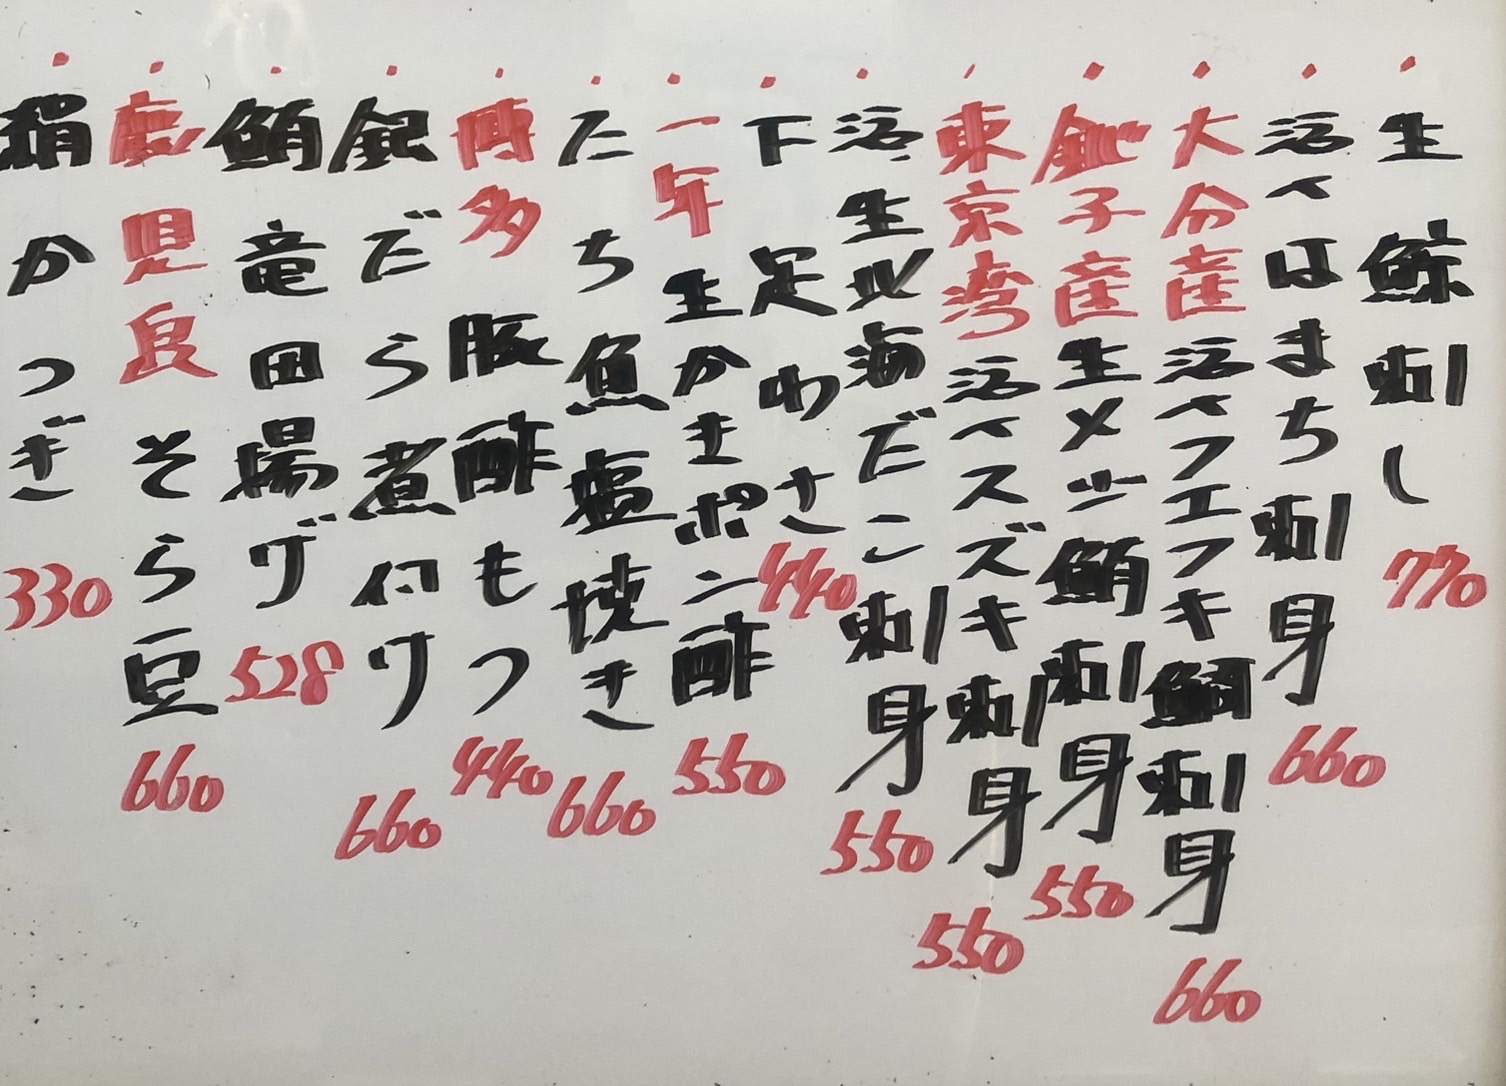 生鯨刺し 770
活〆はまち刺身 660
大分産活〆フエフキ鯛刺身 660
銚子産生メジ鮪刺身 550
東京湾活〆スズキ刺身 550
活生北海だこ刺身 550
下足わさ 440
一年生かきポン酢 550
たち魚塩焼き 660
博多豚酢もつ 440
銀だら煮付け 660
鮪竜田揚げ 528
鹿児島そら豆 660
絹かつぎ 330